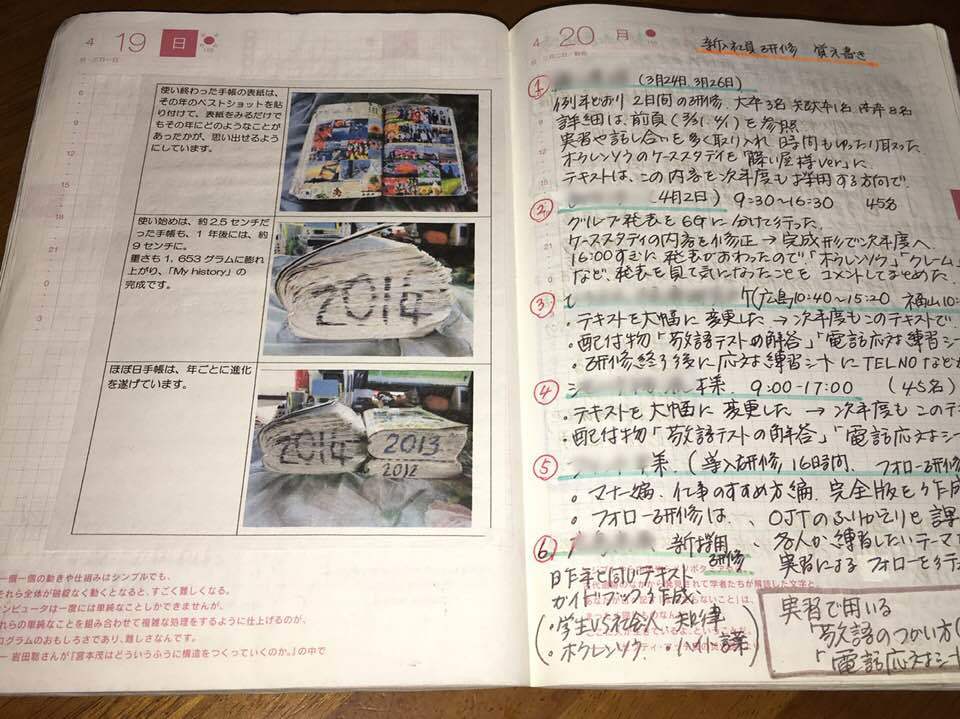 4 19 日
使い終わった手帳の表紙は、
その年のベストショットを貼
り付けて、表紙をみるだけで
もその年にどのようなことが
あったかが、思い出せるよう
にしています。
使い始めは、約2.5センチだ
った手帳も、1年後には、約
9センチに。
重さも1,653グラムに膨れ
上がり、「My history」の
完成です。
2014
ほぼ日手帳は、年ごとに進化
を遂げています。
2014
2013
2012
一個一個の動きや仕組みはシンプルでも、
それら全体が破綻なく動くとなると、すごく難しくなる。
コンピュータは一度には単純なことしかできませんが、
れらの単純なことを組み合わせて複雑な処理をするように仕上げるのが、
ログラムのおもしろさであり、難しさなんです。
岩田聡さんが『宮本茂はどういうふうに構造をつくっていくのか。』の中で
4 20 月
新入社員研修 覚え書き
① (3月24日、3月26日)
例年どおり 2日間の研修、大卒3名 短大卒1名 8名
詳細は、前頁(3/31、4/1)を参照
実習や話し合いを多く取り入れ 時間もゆったり取った
ホウレンソウのケーススタディを
テキストは、この内容を次年度も採用する方向で
② 4月2日) 9:30~16:30 45名
グループ発表を6Gに分けて行った
ケーススタディの内容を修正→完成形で次年度へ
16:00すぎに発表がおわったので「ホウレンソウ」「クレーム
など、発表を見て気になったことをコメントしてまとめた
③ (広島10:40~15:20 福山10:
・テキストを大幅に変更した→次年度もこのテキストで
・配付物「敬語テストの解答」「電話応対練習シー
・研修終了後に応対練習シートにTELNOなどを
④ 様 9:00-17:00 (45名)
・テキストを大幅に変更した→次年度もこのテ
・配付物「敬語テストの解答」「電話応対シー
⑤ 様 (導入研修16時間、フォロー研修
。マナー編、仕事のすすめ方編、完全版を作成
。フォロー研修は、OJTのふりかえりと課
各人が練習したいテーマ
実習によるフォローを行
⑥ 新採用研修
昨年と同じテキスト
ガイドブックを作成
・学生VS社会人
・ホウレンソウ
実習で用いる
「敬語のつかい方
「電話応対シー